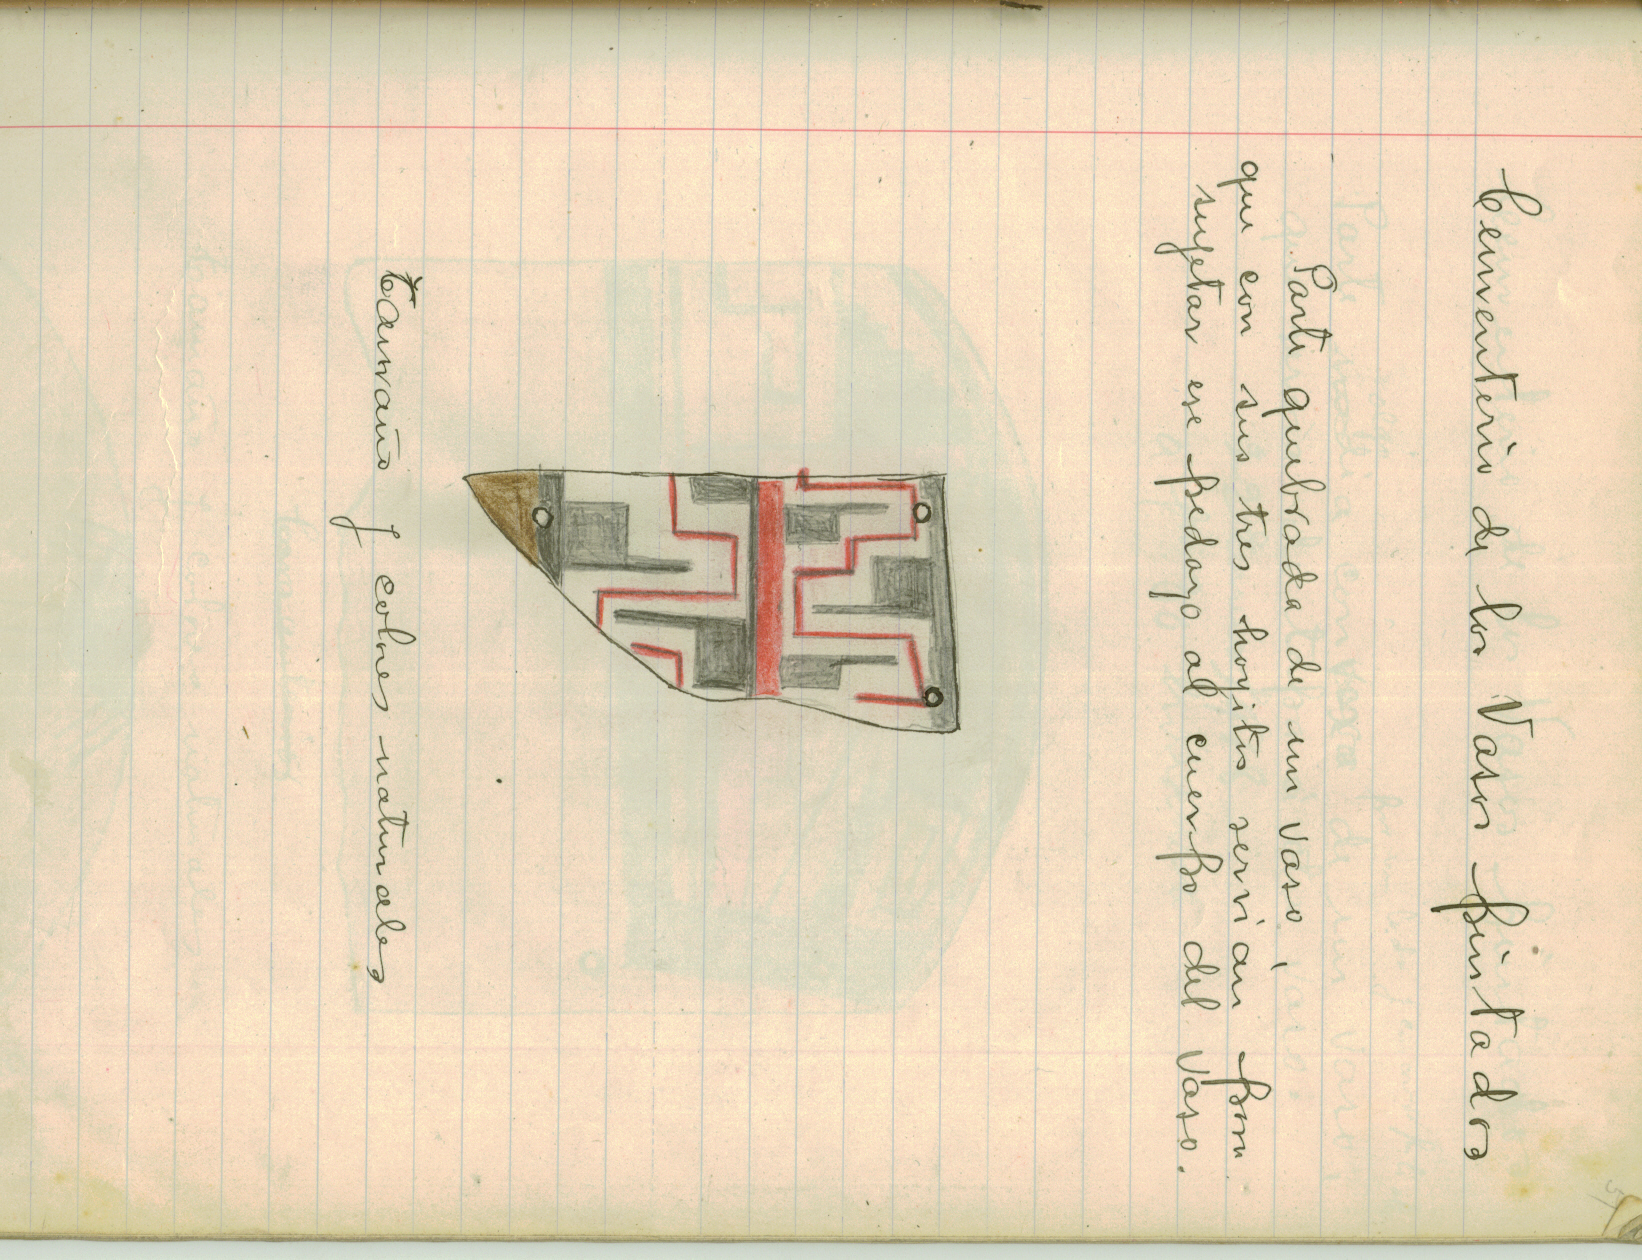 Cementerio de los Vasos pintados
Parte quebrada de un vaso
que con sus tres hoyitos servian para
sugetar ese pedazo al cuerpo del vaso.
tamaño y colores naturales